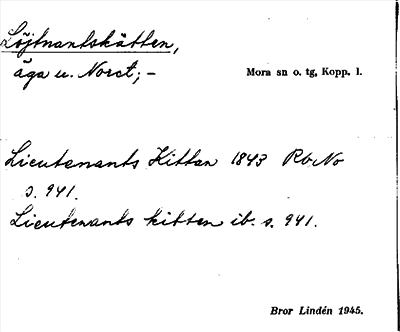 Löjtnantskätten,
äga u. Noret; –
Mora sn o. tg, Kopp. l.
Lieutenants Kittan 1843 RoNo
s. 941.
Lieutenants kitten ib. s. 941.
Bror Lindén 1945.